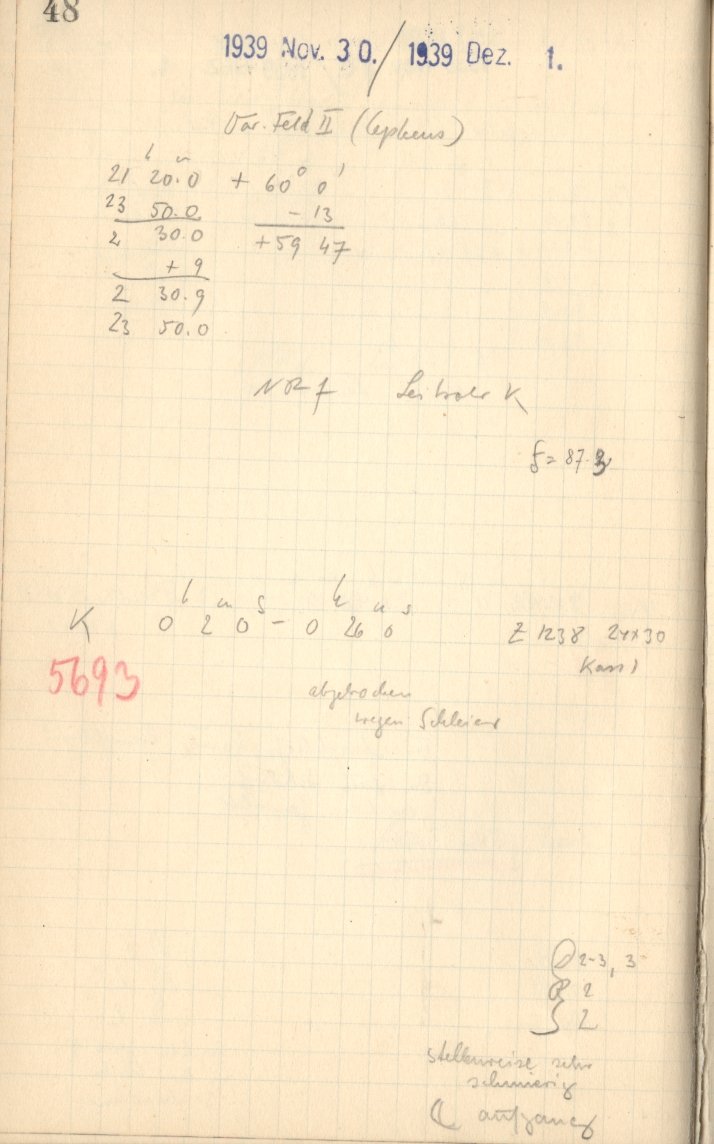 48
1939 Nov. 30. / 1939 Dez. 1.
Var. Feld II (Cepheus)
h m
21 20.0 + 60° 0'
23 50.0 - 13
2 30.0 +59 47
+ 9
2 30.9
23 50.0
NR 7 Leitrohr K
f = 87.3
h m s h m s
K 0 2 0 - 0 26 0 Z 1238 24x30
5693 Kass 1
abgebrochen
wegen Schleier
2-3, 3
2
2
stellenweise sehr
schmierig
☾ aufgang